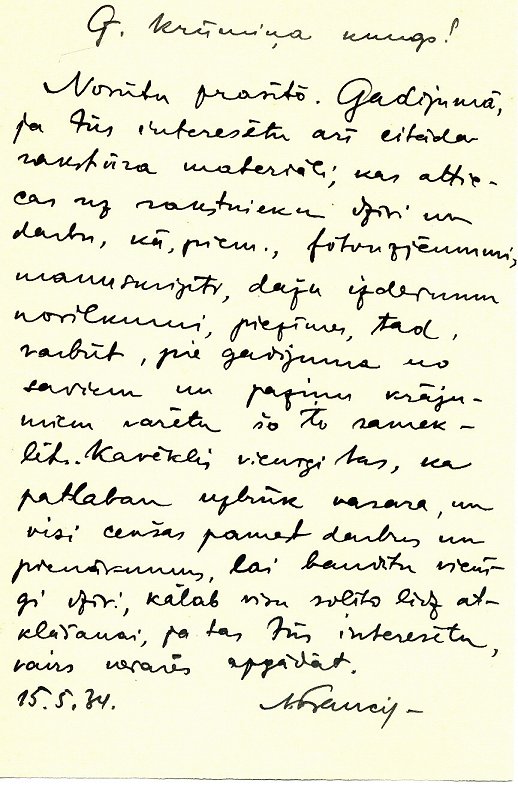 G. Krūmiņa kungs!
Nosūtu prasīto. Gadījumā,
ja Jūs interesētu arī citāda
rakstūra materiāli, kas attie-
cas uz rakstnieku dzīvi un
darbu, kā, piem., fotouzņēmumi,
manuskripti, dažu izdevumu
novilkumi, piezīmes, tad,
varbūt, pie gadījuma no
saviem un paziņu krāju-
miem varētu šo to samek-
lēt. Kavēklis vienīgi tas, ka
patlaban uzbrūk vasara, un
visi cenšas pamest darbus un
pienākumus, lai baudītu vienī-
gi dzīvi, kālab visu solīto līdz at-
klāšanai, ja tas Jūs interesētu,
vairs nevarēs apgādāt.
15.5.34.